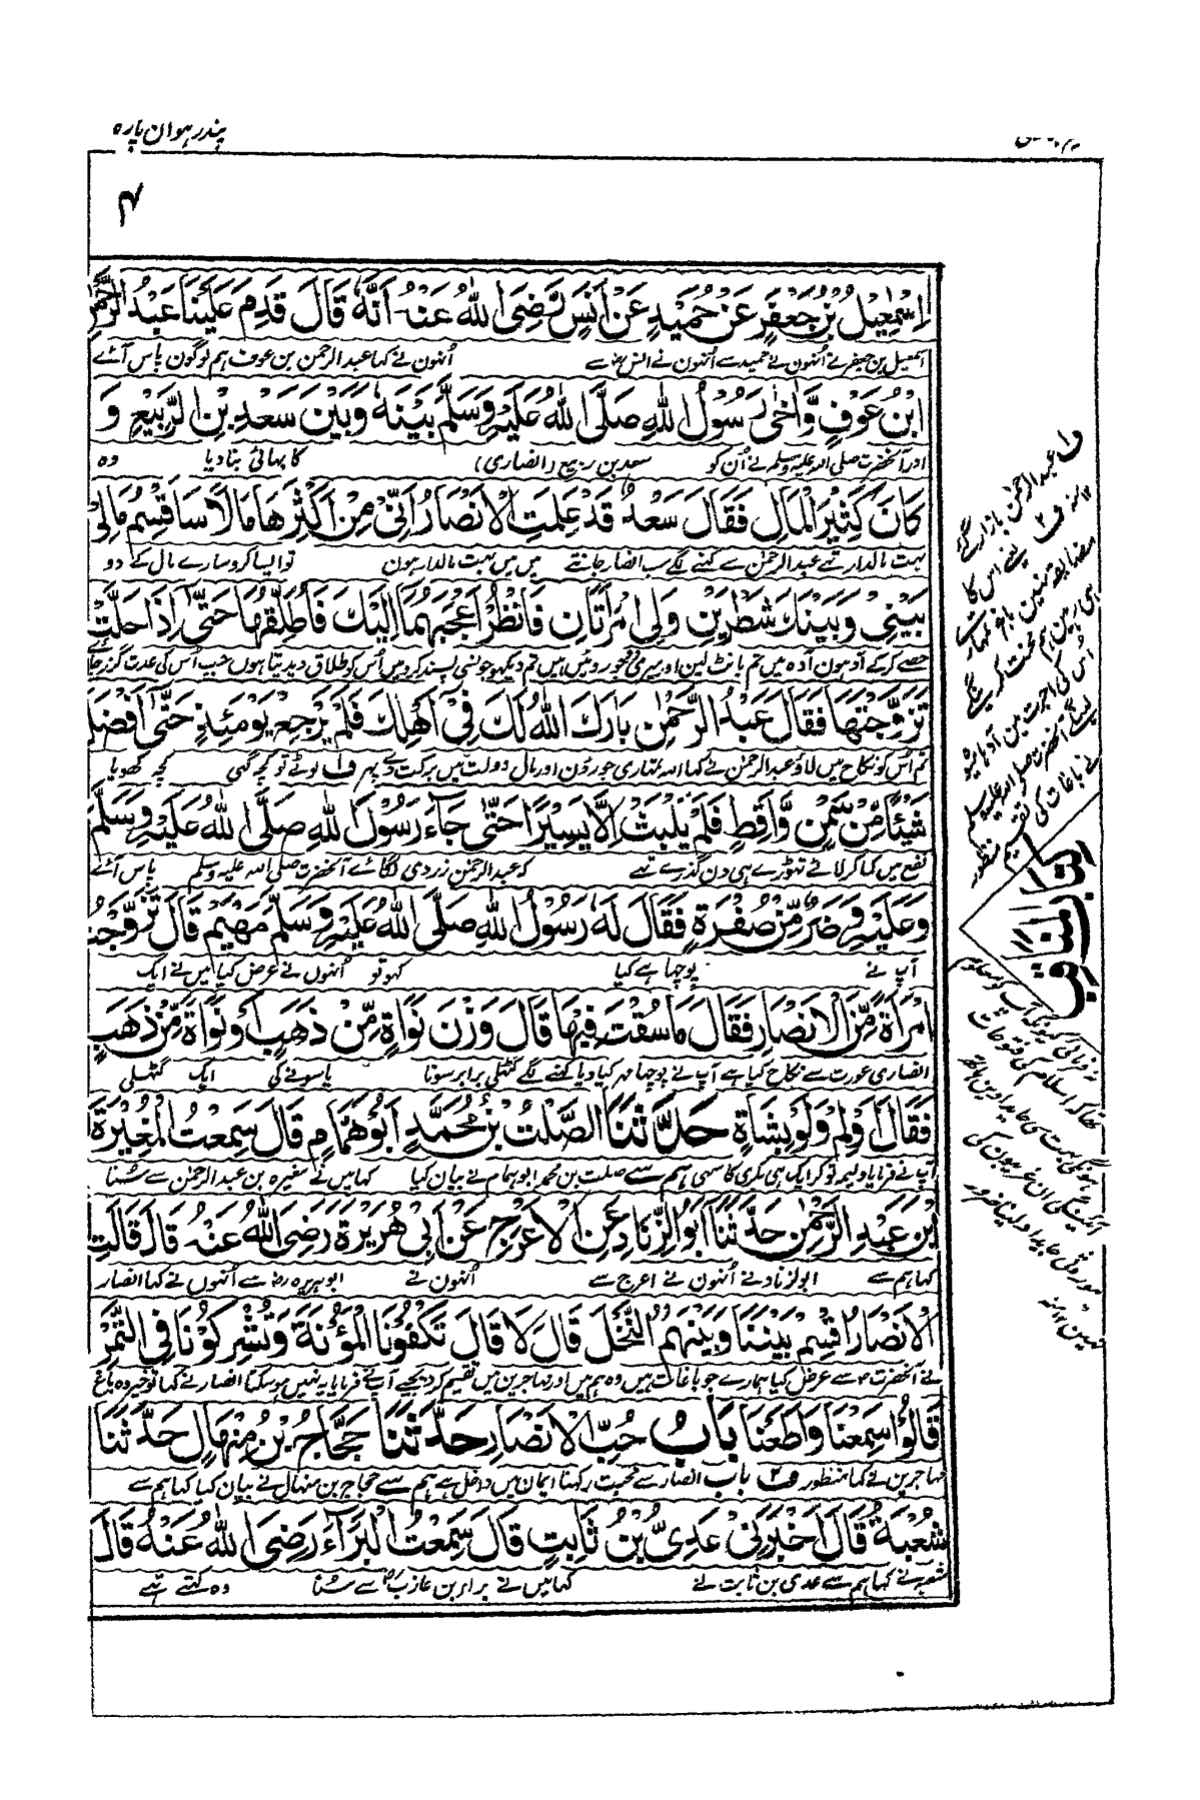 پندرہوان پارہ
۴
اِسْمٰعِيْلُ بْنُ جَعْفَرٍ عَنْ حُمَيْدٍ عَنْ اَنَسٍ رَّضِىَ اللهُ عَنْهُ اَنَّهٗ قَالَ قَدِمَ عَلَيْنَا عَبْدُ الرَّحْمٰنِ
اسمعیل بن جعفر نے اُنھون نے حمید سے اُنھون نے انس رضہ سے اُنھون نے کہا عبد الرحمن بن عوف ہم لوگون پاس آئے
ابْنُ عَوْفٍ وَّاٰخٰى رَسُوْلُ اللهِ صَلَّى اللهُ عَلَيْهِ وَسَلَّمَ بَيْنَهٗ وَبَيْنَ سَعْدِ بْنِ الرَّبِيْعِ وَ
اور آنحضرت صلی اللہ علیہ وسلم نے اُن کو سعد بن ربیع (انصاری) کا بھائی بنا دیا وہ
كَانَ كَثِيْرَ الْمَالِ فَقَالَ سَعْدٌ قَدْ عَلِمَتِ الْاَنْصَارُ اَنِّىْ مِنْ اَكْثَرِهَا مَالًا سَاَقْسِمُ مَالِىْ
بہت مالدار تھے عبد الرحمٰن سے کہنے لگے سب انصار جانتے ہین مین بہت مالدار ہون تو ایسا کرو سارے مال کے دو
بَيْنِىْ وَبَيْنَكَ شَطْرَيْنِ وَلِى امْرَاَتَانِ فَانْظُرْ اَعْجَبَهُمَا اِلَيْكَ فَاُطَلِّقُهَا حَتّٰى اِذَا حَلَّتْ
حصے کرکے آدہون آدہ مین تم بانٹ لین اور میری دو جوروئین ہین تم دیکھو جونسی پسند کرو مین اُس کو طلاق دیدیتا ہون جب اُس کی عدت گزر جائے
تَزَوَّجْتَهَا فَقَالَ عَبْدُ الرَّحْمٰنِ بَارَكَ اللهُ لَكَ فِىْ اَهْلِكَ فَلَمْ يَرْجِعْ يَوْمَئِذٍ حَتّٰى اَفْضَلَ
تم اُس کو نکاح مین لاؤ عبد الرحمٰن نے کہا اللہ تمہاری جورون اور مال دولت مین برکت دے پھر ف۱ لوٹے تو کچھ گھی کچھ کھویا
شَيْئًا مِّنْ سَمْنٍ وَّاَقِطٍ فَلَمْ يَلْبَثْ اِلَّا يَسِيْرًا حَتّٰى جَآءَ رَسُوْلَ اللهِ صَلَّى اللهُ عَلَيْهِ وَسَلَّمَ
نفع مین کما کر لائے تھوڑے ہی دن گذرے تھے کہ عبد الرحمن زردی لگائے آنحضرت صلی اللہ علیہ وسلم پاس آئے
وَعَلَيْهِ وَضَرٌ مِّنْ صُفْرَةٍ فَقَالَ لَهٗ رَسُوْلُ اللهِ صَلَّى اللهُ عَلَيْهِ وَسَلَّمَ مَهْيَمْ قَالَ تَزَوَّجْتُ
آپ نے پوچھا ہے کیا کہو تو اُنہون نے عرض کیا مین نے ایک
امْرَاَةً مِّنَ الْاَنْصَارِ فَقَالَ مَا سُقْتَ فِيْهَا قَالَ وَزْنَ نَوَاةٍ مِّنْ ذَهَبٍ اَوْ نَوَاةً مِّنْ ذَهَبٍ
انصاری عورت سے نکاح کیا ہے آپ نے پوچھا مہر کیا دیا کہنے لگے گٹھلی برابر سونا یا سونے کی ایک گٹھلی
فَقَالَ اَوْلِمْ وَلَوْ بِشَاةٍ حَدَّثَنَا الصَّلْتُ بْنُ مُحَمَّدٍ اَبُوْ هَمَّامٍ قَالَ سَمِعْتُ الْمُغِيْرَةَ
آپ نے فرمایا ولیمہ تو کر ایک ہی بکری کا سہی ہم سے صلت بن محمد ابو ہمام نے بیان کیا کہا مین نے مغیرہ بن عبد الرحمٰن سے سُنا
بْنَ عَبْدِ الرَّحْمٰنِ حَدَّثَنَا اَبُو الزِّنَادِ عَنِ الْاَعْرَجِ عَنْ اَبِىْ هُرَيْرَةَ رَضِىَ اللهُ عَنْهُ قَالَ قَالَتِ
کہا ہم سے ابو الزناد نے اُنہون نے اعرج سے اُنہون نے ابو ہریرہ رضہ سے اُنہون نے کہا انصار
الْاَنْصَارُ اقْسِمْ بَيْنَنَا وَبَيْنَهُمُ النَّخْلَ قَالَ لَا قَالَ تَكْفُوْنَا الْمَؤُنَةَ وَتُشْرِكُوْنَا فِى التَّمْرِ
نے آنحضرت ؐ سے عرض کیا ہمارے جو باغات ہین وہ ہم مین اور مہاجرین مین تقسیم کر دیجیے آپ نے فرمایا یہ نہین ہو سکتا انصار نے کہا تو خیر وہ باغ
قَالُوْا سَمِعْنَا وَاَطَعْنَا بَابُ حُبِّ الْاَنْصَارِ حَدَّثَنَا حَجَّاجُ بْنُ مِنْهَالٍ حَدَّثَنَا
مہاجرین نے کہا منظور ف۲ باب انصار سے محبت رکھنا ایمان مین داخل ہے ہم سے حجاج بن منہال نے بیان کیا کہا ہم سے
شُعْبَةُ قَالَ اَخْبَرَنِىْ عَدِىُّ بْنُ ثَابِتٍ قَالَ سَمِعْتُ الْبَرَآءَ رَضِىَ اللهُ عَنْهُ قَالَ
شعبہ نے کہا ہم سے عدی بن ثابت نے کہا مین نے براء بن عازب رضہ سے سُنا وہ کہتے تھے
ف۱ عبد الرحمٰن بازار گئے
۱۲ منہ ف۲ یعنے اس کا
مضایقہ نہین باغ تمہارے
ہی رہین ہم محنت کرینگے
اُس کی اجرت مین آدھا میوہ
لینگے آنحضرت صلی اللہ علیہ وسلم
نے باغات کی تقسیم منظور
كتاب المناقب
نہ فرمائی کیونکہ آپ کو معلوم
تھا کہ اسلام کی فتوحات